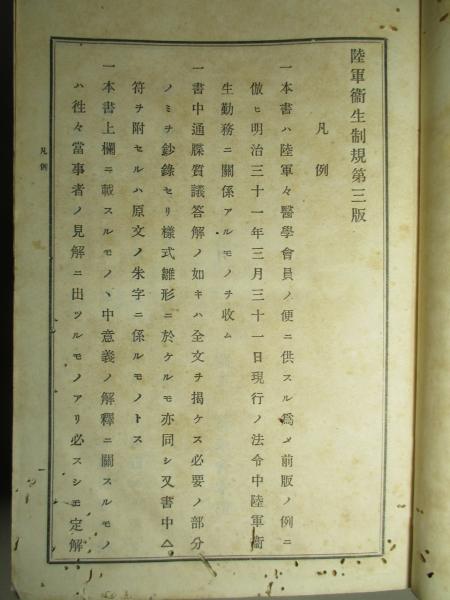 陸軍衞生制規第三版
凡例
一本書ハ陸軍々醫學會員ノ便ニ供スル爲メ前版ノ例ニ
倣ヒ明治三十一年三月三十一日現行ノ法令中陸軍衞
生勤務ニ關係アルモノヲ收ム
一書中通牒質議答解ノ如キハ全文ヲ揭ケス必要ノ部分
ノミヲ鈔錄セリ樣式雛形ニ於ケルモ亦同シ又書中△
符ヲ附セルハ原文ノ朱字ニ係ルモノトス
一本書上欄ニ載スルモノヽ中意義ノ解釋ニ關スルモノ
ハ徃々當事者ノ見解ニ出ツルモノアリ必スシモ定解
凡例
一